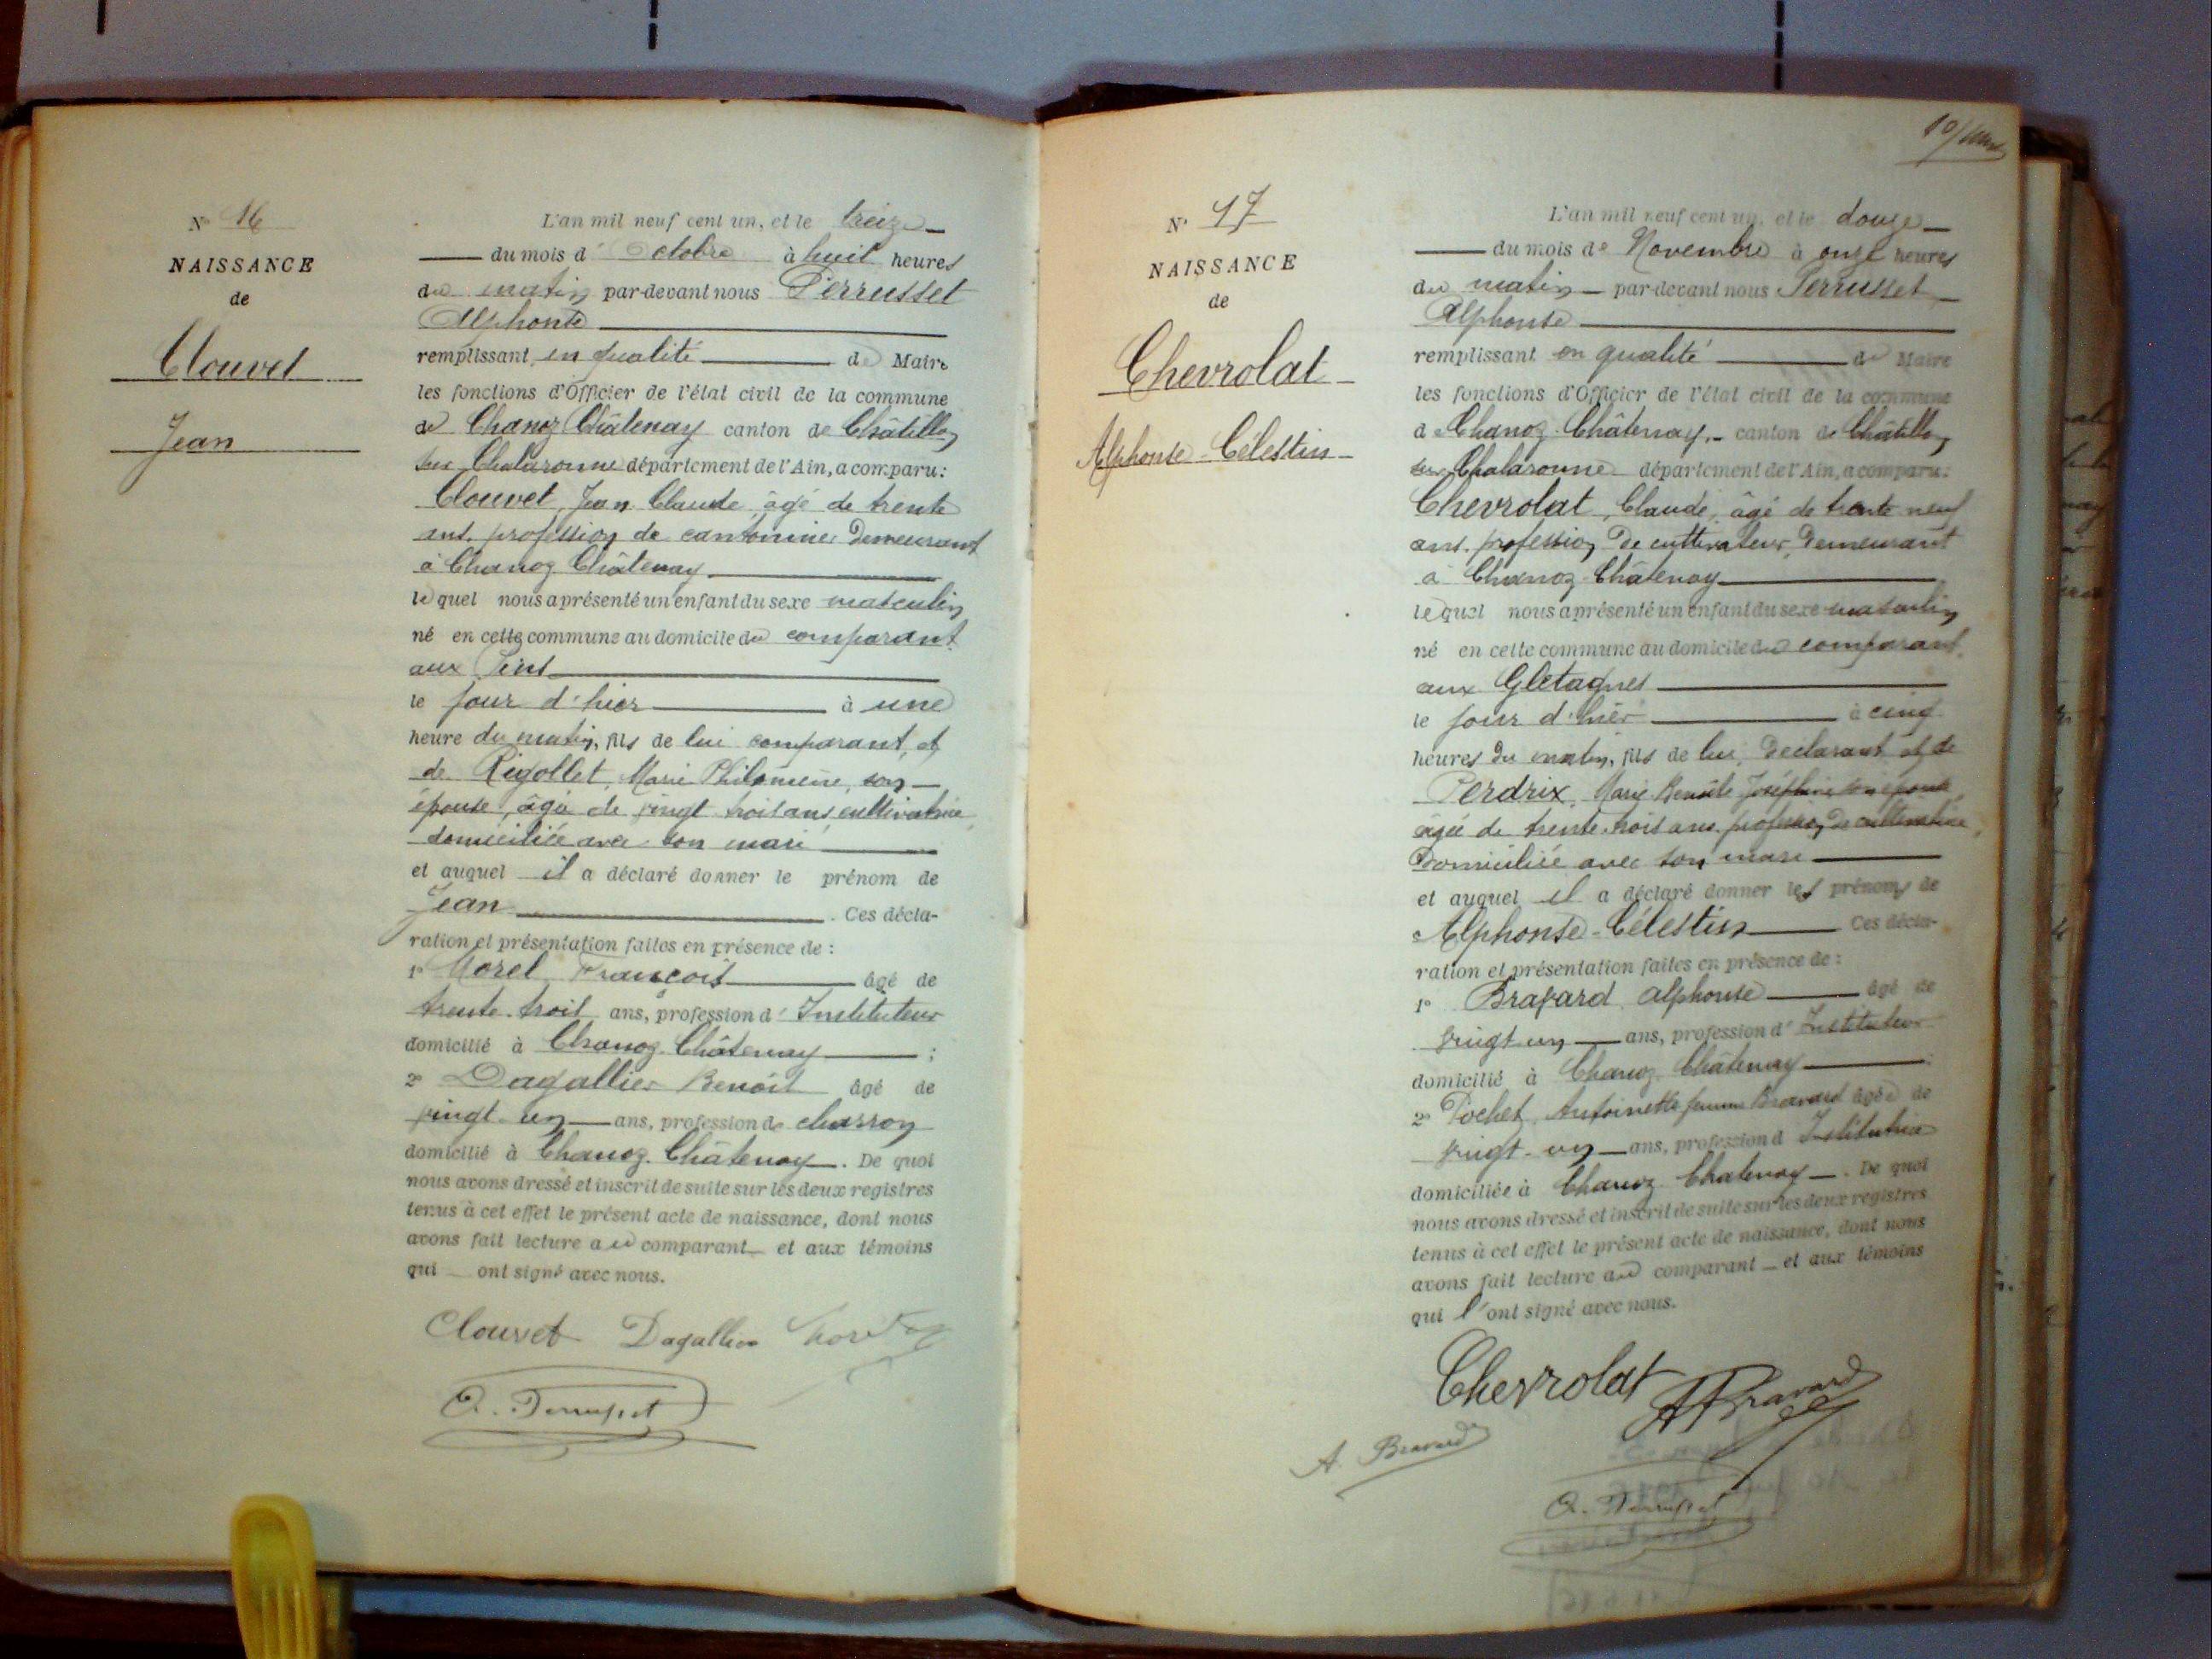 N° 16
NAISSANCE
de
Clouvet
Jean
L'an mil neuf cent un, et le treize
du mois d'Octobre à huit heures
du matin par-devant nous Perrusset
Alphonse
remplissant en qualité de Maire
les fonctions d'Officier de l'état civil de la commune
de Chanoz Châtenay canton de Châtillon
sur Chalaronne département de l'Ain, a comparu:
Clouvet, Jean Claude, âgé de trente
ans, profession de cantonnier demeurant
à Chanoz Châtenay
lequel nous a présenté un enfant du sexe masculin
né en cette commune au domicile du comparant
aux
le jour d'hier à une
heure du matin, fils de lui comparant, et
de Rigollet, Marie Philomène, son
épouse, âgée de vingt trois ans, cultivatrice,
domiciliée avec son mari
et auquel il a déclaré donner le prénom de
Jean. Ces décla-
ration et présentation faites en présence de :
1° Morel François âgé de
trente-trois ans, profession d'Instituteur
domicilié à Chanoz-Châtenay ;
2° Dagallier Benoît âgé de
vingt-un ans, profession de charron
domicilié à Chanoz-Châtenay. De quoi
nous avons dressé et inscrit de suite sur les deux registres
tenus à cet effet le présent acte de naissance, dont nous
avons fait lecture au comparant et aux témoins
qui ont signé avec nous.
Clouvet Dagallier Morel
A. Perrusset
N° 17
NAISSANCE
de
Chevrolat
Alphonse-Célestin
L'an mil neuf cent un, et le douze
du mois de Novembre à onze heures
du matin par-devant nous Perrusset
Alphonse
remplissant en qualité de Maire
les fonctions d'Officier de l'état civil de la commune
de Chanoz-Châtenay, canton de Châtillon
sur Chalaronne département de l'Ain, a comparu:
Chevrolat, Claude, âgé de trente neuf
ans, profession de cultivateur, demeurant
à Chanoz-Châtenay
lequel nous a présenté un enfant du sexe masculin
né en cette commune au domicile du comparant,
aux Gletagnes
le jour d'hier à cinq
heures du matin, fils de lui, déclarant et de
Perdrix, Marie Benoîte Joséphine son épouse,
âgée de trente-trois ans, profession de cultivatrice,
domiciliée avec son mari
et auquel il a déclaré donner les prénoms de
Alphonse-Célestin Ces décla-
ration et présentation faites en présence de :
1° Bravard Alphonse âgé de
vingt-un ans, profession d'Instituteur
domicilié à Chanoz-Châtenay ;
2° Pochet, Antoinette femme Bravard âgée de
vingt-un ans, profession d'Institutrice
domiciliée à Chanoz-Chatenay. De quoi
nous avons dressé et inscrit de suite sur les deux registres
tenus à cet effet le présent acte de naissance, dont nous
avons fait lecture au comparant et aux témoins
qui l'ont signé avec nous.
Chevrolat A Bravard
A. Bravard
A. Perrusset